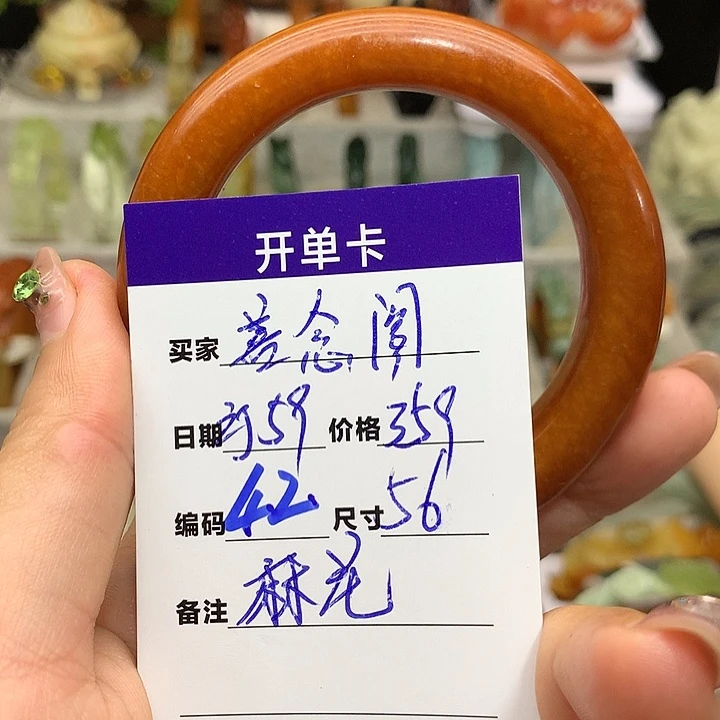 开单卡
买家 善念阁
日期 359 价格 359
编码 42 尺寸 56
备注 麻花